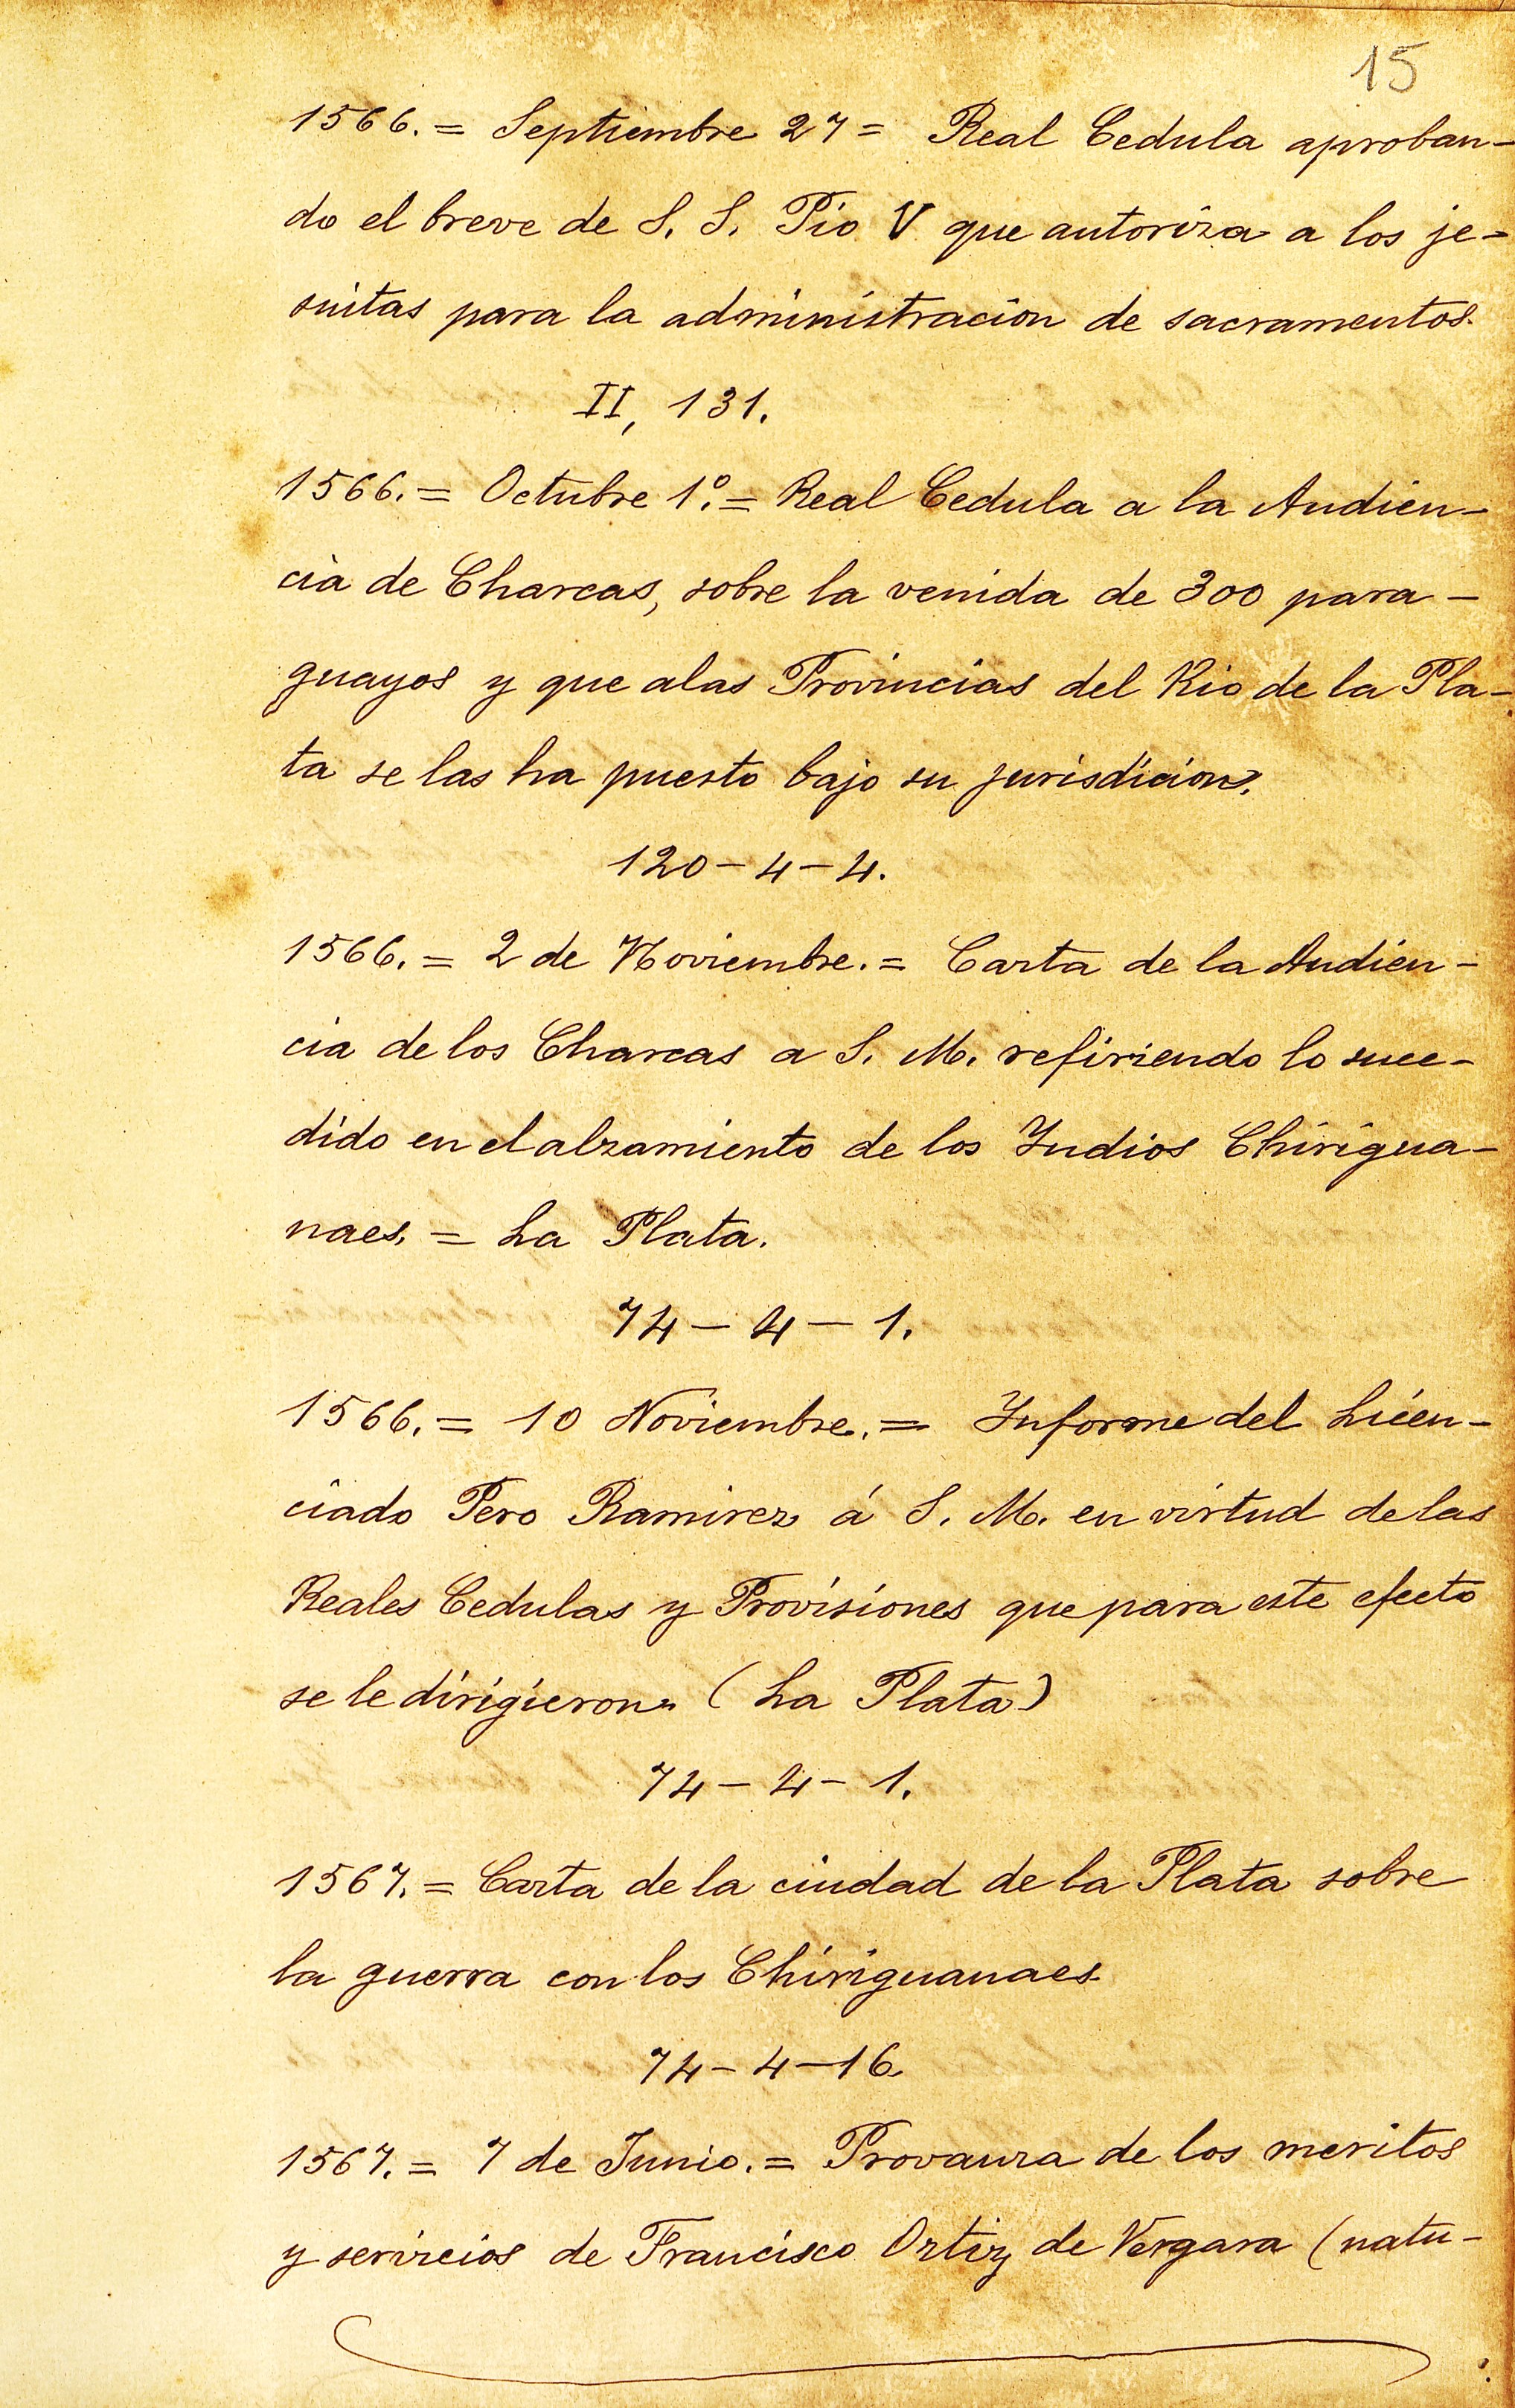 15
1566. = Septiembre 27 = Real Cedula aproban-
do el breve de S. S. Pio V que autoriza a los je-
suitas para la administracion de sacramentos.
II, 131.
1566. = Octubre 1º. = Real Cedula a la Audien-
cia de Charcas, sobre la venida de 300 para-
guayos y que alas Provincias del Rio de la Pla-
ta se las ha puesto bajo su jurisdicion.
120-4-4.
1566. = 2 de Noviembre. = Carta de la Audien-
cia de los Charcas a S. M. refiriendo lo suce-
dido en el alzamiento de los Indios Chirigua-
naes. = La Plata.
74-4-1.
1566. = 10 Noviembre. = Informe del Licen-
ciado Pero Ramirez á S. M. en virtud de las
Reales Cedulas y Provisiones que para este efecto
se le dirigieron. (La Plata)
74-4-1.
1567. = Carta de la ciudad de la Plata sobre
la guerra con los Chiriguanaes.
74-4-16.
1567. = 7 de Junio. = Provanza de los meritos
y servicios de Francisco Ortiz de Vergara (natu-